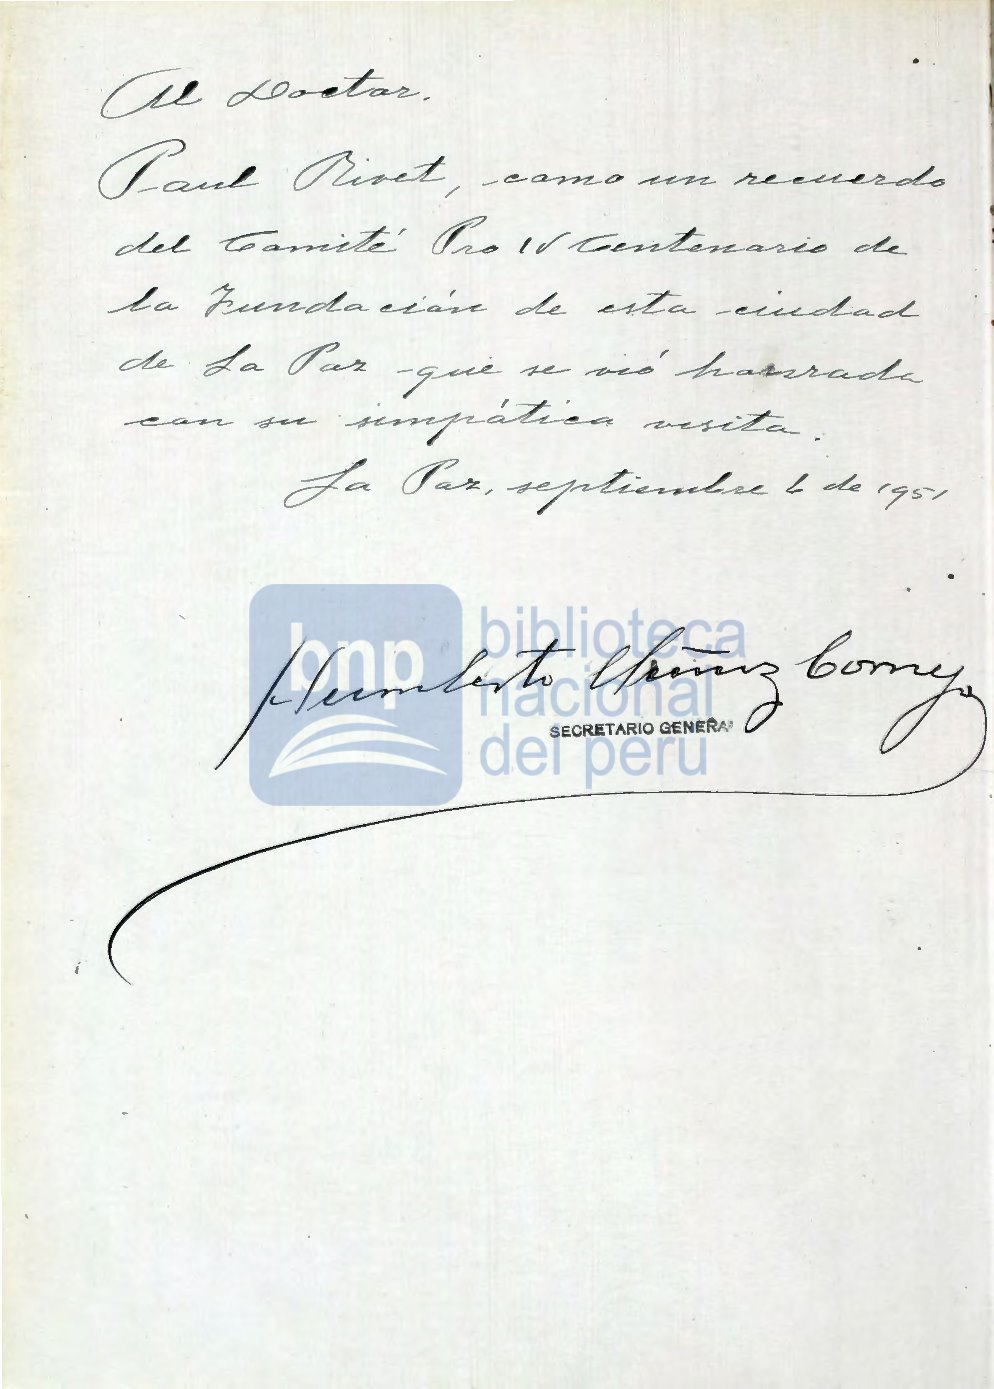 Al Doctor.
Paul Rivet, como un recuerdo
del Comité Pro IV Centenario de
la Fundación de esta ciudad
de La Paz que se vió honrada
con su simpática visita.
La Paz, septiembre 6 de 1951
Humberto Muñoz Cornejo
SECRETARIO GENERAL
bnp
biblioteca
nacional
del perú